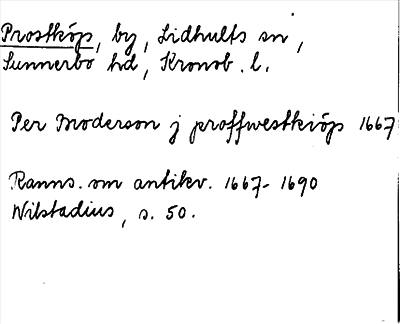 Prostköp, by, Lidhults sn,
Sunnerbo hd, Kronob. l.
Per Moderson j proffwestkiöp 1667
Ranns. om antikv. 1667-1690
Wilstadius, s. 50.